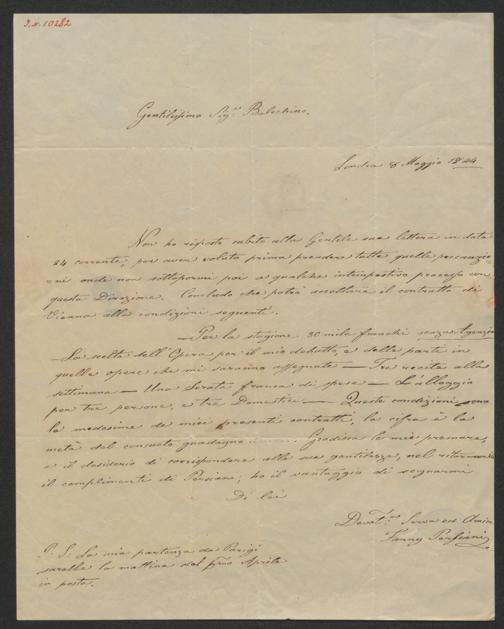 I.N. 10282
Gentilissimo Sigr. Balochino.
Londra 8 Maggio 1844
Non ho risposto subito alla Gentile sua lettera in data
24 corrente, per aver voluto prima prendere tutte quelle precauzio
ni onde non sottopormi poi a qualche intempestivo processo con
questa Direzione. Concludo che potrò accettare il contratto di
Vienna alle condizioni seguenti.
— Per la stagione 30 mila franchi senza Agenzia
— La scelta dell'Opera per il mio debutto, e della parte in
quelle opere che mi saranno assegnate — Tre recite alla
settimana — Una Serata franca di spese — L'alloggio
per tre persone, e tre Domestici — Queste condizioni sono
le medesime de' miei presenti contratti, la cifra è la
metà del consueto guadagno . . . . . Gradisca le mie premure,
e il desiderio di corrispondere alla sua gentilezza, nel ritornarle
il complimenti di Persiani, ho il vantaggio di segnarmi
Di lei
Devotma Serva ed Amica
Fanny Persiani
P. S. La mia partenza da Parigi
sarebbe la mattina del primo Aprile
in posta.